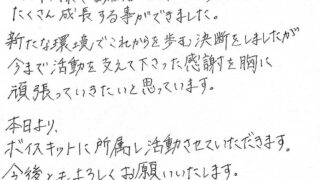 たくさん成長する事ができました。
新たな環境でこれからを歩む決断をしましたが
今まで活動を支えて下さった感謝を胸に
頑張っていきたいと思っています。
本日より、
ボイスキットに所属し活動させていただきます。
今後ともよろしくお願いいたします。